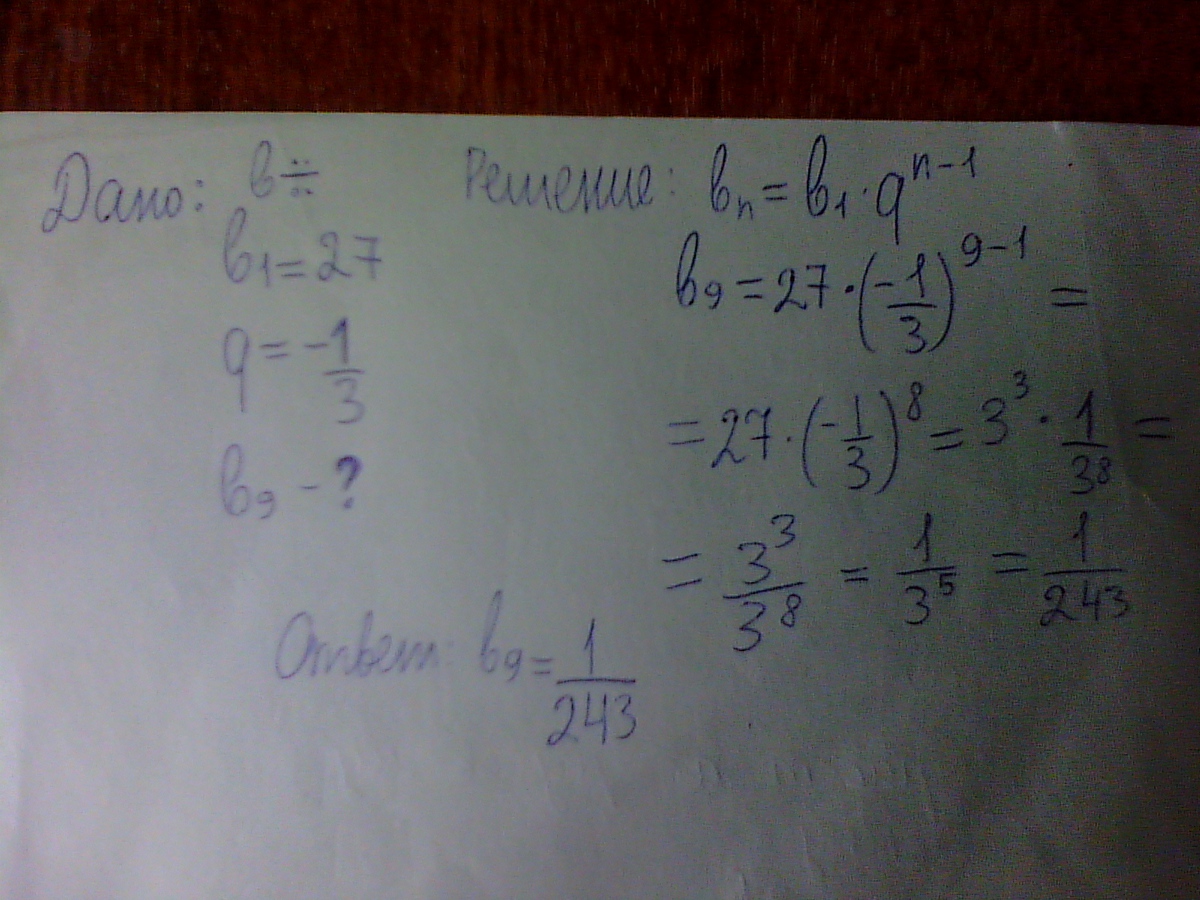 Дано: b ÷
b₁ = 27
q = -1/3
b₉ - ?
Решение: bₙ = b₁ · qⁿ⁻¹
b₉ = 27 · (-1/3)⁹⁻¹ =
= 27 · (-1/3)⁸ = 3³ · 1/3⁸ =
= 3³/3⁸ = 1/3⁵ = 1/243
Ответ: b₉ = 1/243